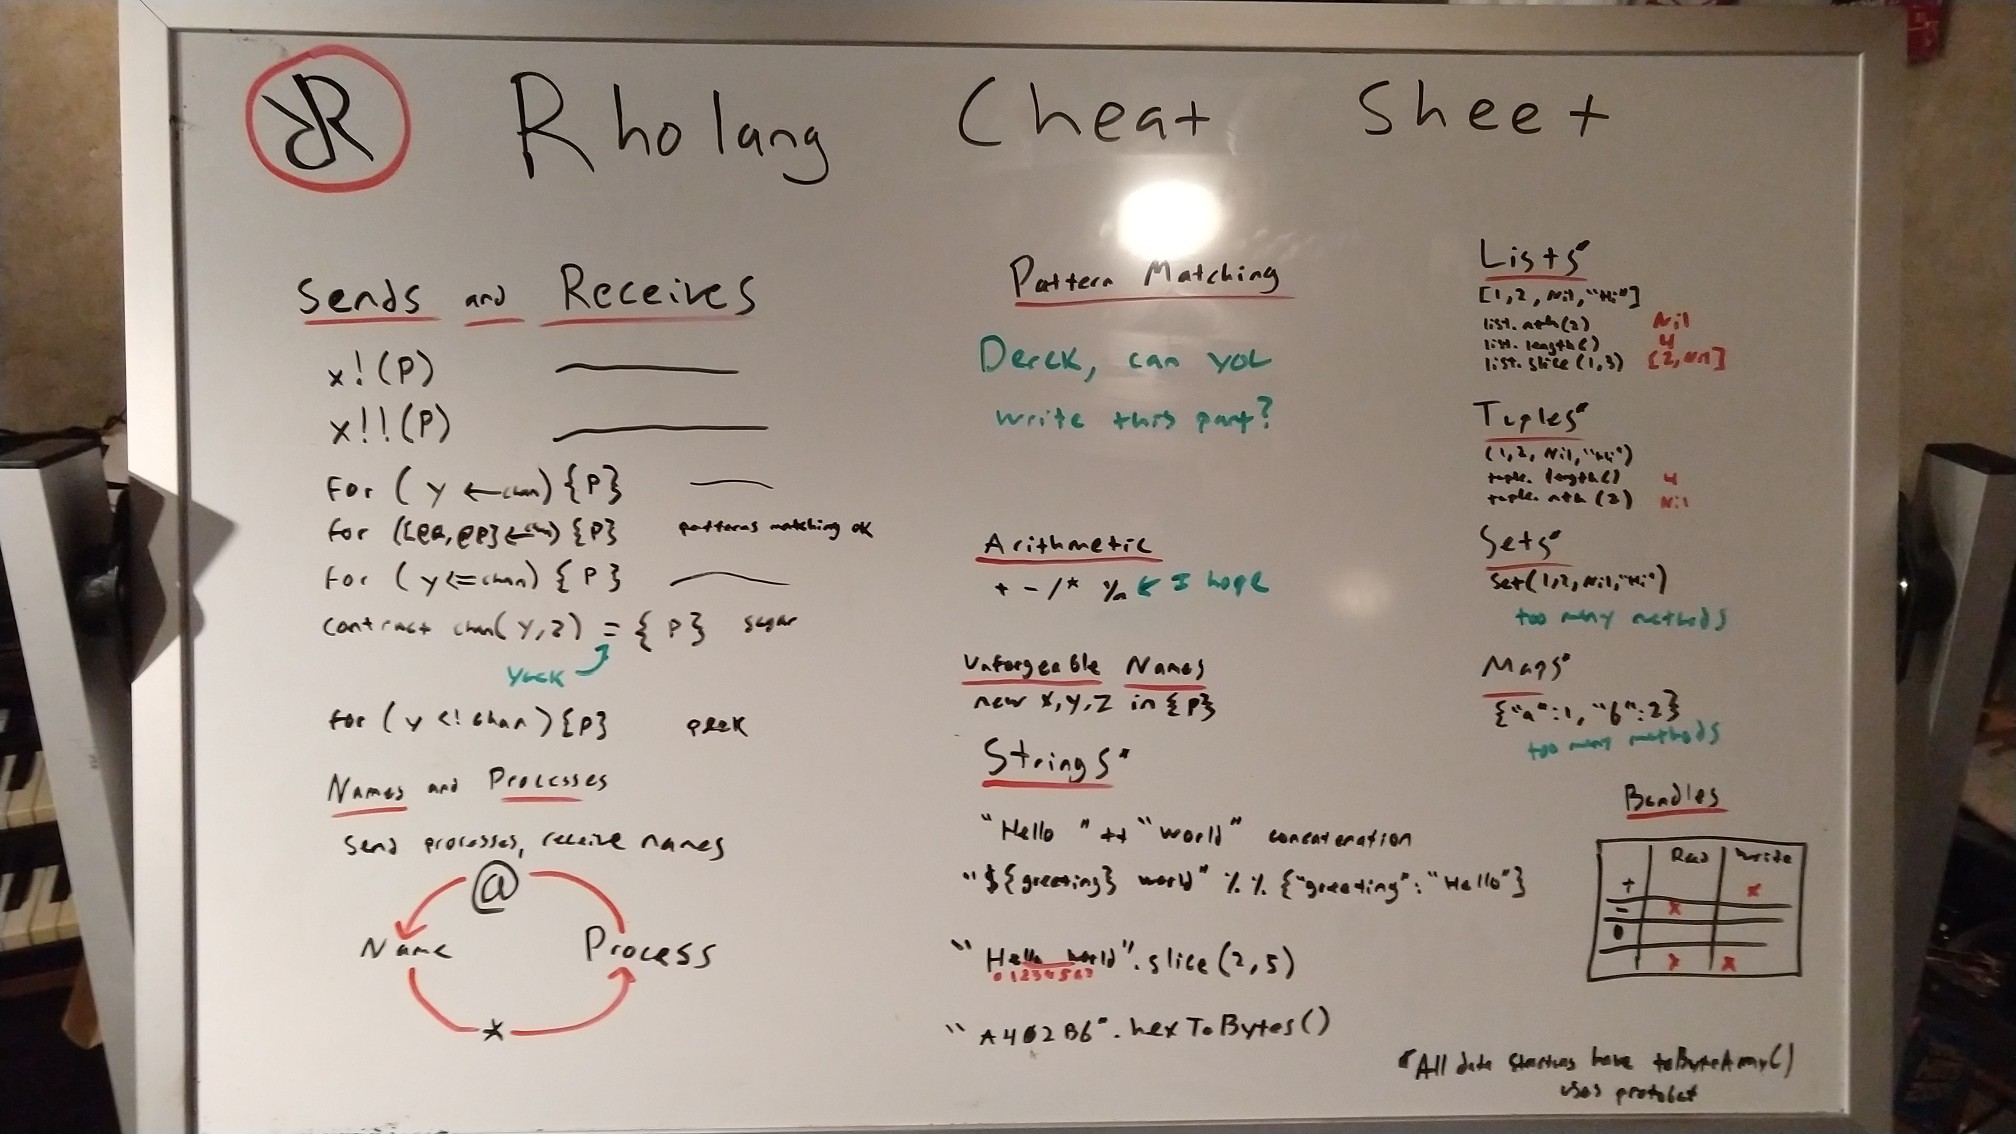 R Rholang Cheat Sheet
Sends and Receives
x!(P)
x!!(P)
For (y ← chan) {P}
for ([@a, @b] ← chan) {P} patterns matching ok
for (y <= chan) {P}
contract chan(y,z) = {P} sugar
Yuck
for (y <! chan) {P} peek
Names and Processes
Send processes, receive names
@
Name Process
*
Pattern Matching
Derek, can you
write this part?
Arithmetic
+ - / * % ← I hope
Unforgeable Names
new x,y,z in {P}
Strings*
"Hello " ++ "world" concatenation
"${greeting} world" %% {"greeting": "Hello"}
"Hello world".slice(2,5)
01234567
"A402B6".hexToBytes()
Lists*
[1,2,Nil,"Hi"]
list.nth(2) Nil
list.length() 4
list.slice(1,3) [2,Nil]
Tuples*
(1,2,Nil,"Hi")
tuple.length() 4
tuple.nth(2) Nil
Sets*
Set(1,2,Nil,"Hi")
too many methods
Maps*
{"a":1, "b":2}
too many methods
Bundles
Read Write
+ x
- x
0
x x
*All data structures have toByteArray()
uses protobuf